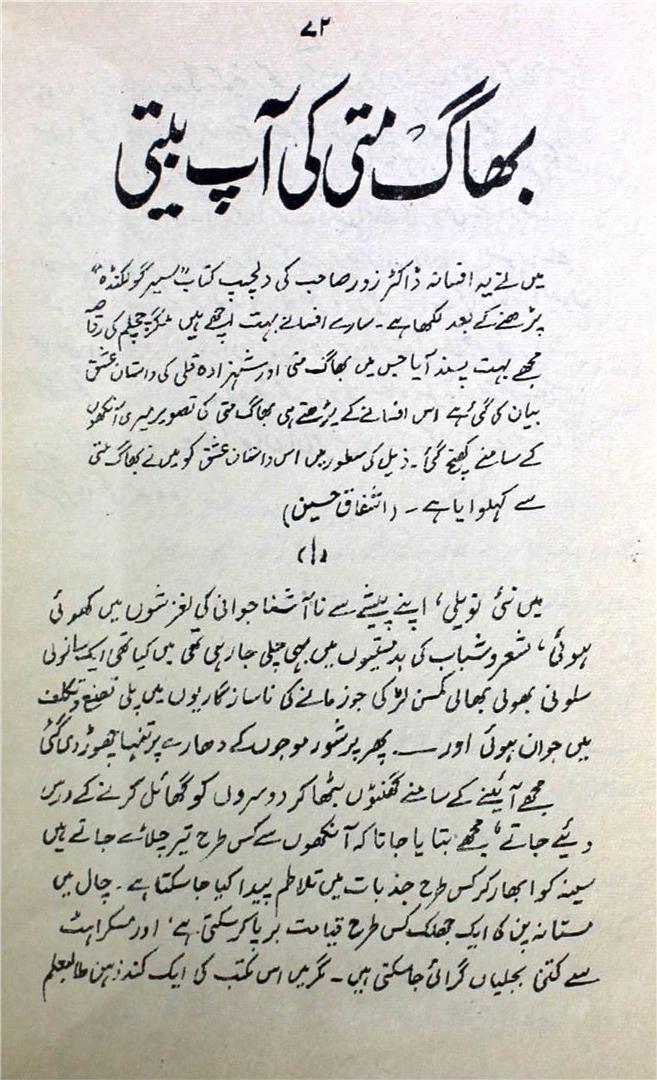 ۷۲
بھاگ متی کی آپ بیتی
میں نے یہ افسانہ ڈاکٹر زور صاحب کی دلچسپ کتاب "سیر گولکنڈہ"
پڑھنے کے بعد لکھا ہے۔ سارے افسانے بہت اچھے ہیں مگر چچلم کی رقاصہ
مجھے بہت پسند آیا جس میں بھاگ متی اور شہزادہ قلی کی داستان عشق
بیان کی گئی ہے اس افسانے کے پڑھتے ہی بھاگ متی کی تصویر میری آنکھوں
کے سامنے کھنچ گئی۔ ذیل کی سطور میں اس داستان عشق کو میں نے بھاگ متی
سے کہلوایا ہے۔ (اشفاق حسین)
(۱)
میں نئی نویلی، اپنے پیشے سے نا آشنا جوانی کی لغزشوں میں کھوئی
ہوئی، شعر و شباب کی بدمستیوں میں بہی چلی جا رہی تھی میں کیا تھی ایک سانولی
سلونی بھولی بھالی کمسن لڑکی جو زمانے کی ناسازگاریوں میں پلی تصنع و تکلف
میں جوان ہوئی اور ــــ پھر پرشور موجوں کے دھارے پر تنہا چھوڑ دی گئی
مجھے آئینے کے سامنے گھنٹوں بٹھا کر دوسروں کو گھائل کرنے کے درس
دیئے جاتے، مجھے بتایا جاتا کہ آنکھوں سے کس طرح تیر چلائے جاتے ہیں
سینہ کو ابھار کر کس طرح جذبات میں تلاطم پیدا کیا جا سکتا ہے۔ چال میں
مستانہ پن کی ایک جھلک کس طرح قیامت برپا کر سکتی ہے، اور مسکراہٹ
سے کتنی بجلیاں گرائی جا سکتی ہیں۔ مگر میں اس مکتب کی ایک کند ذہن طالبعلم